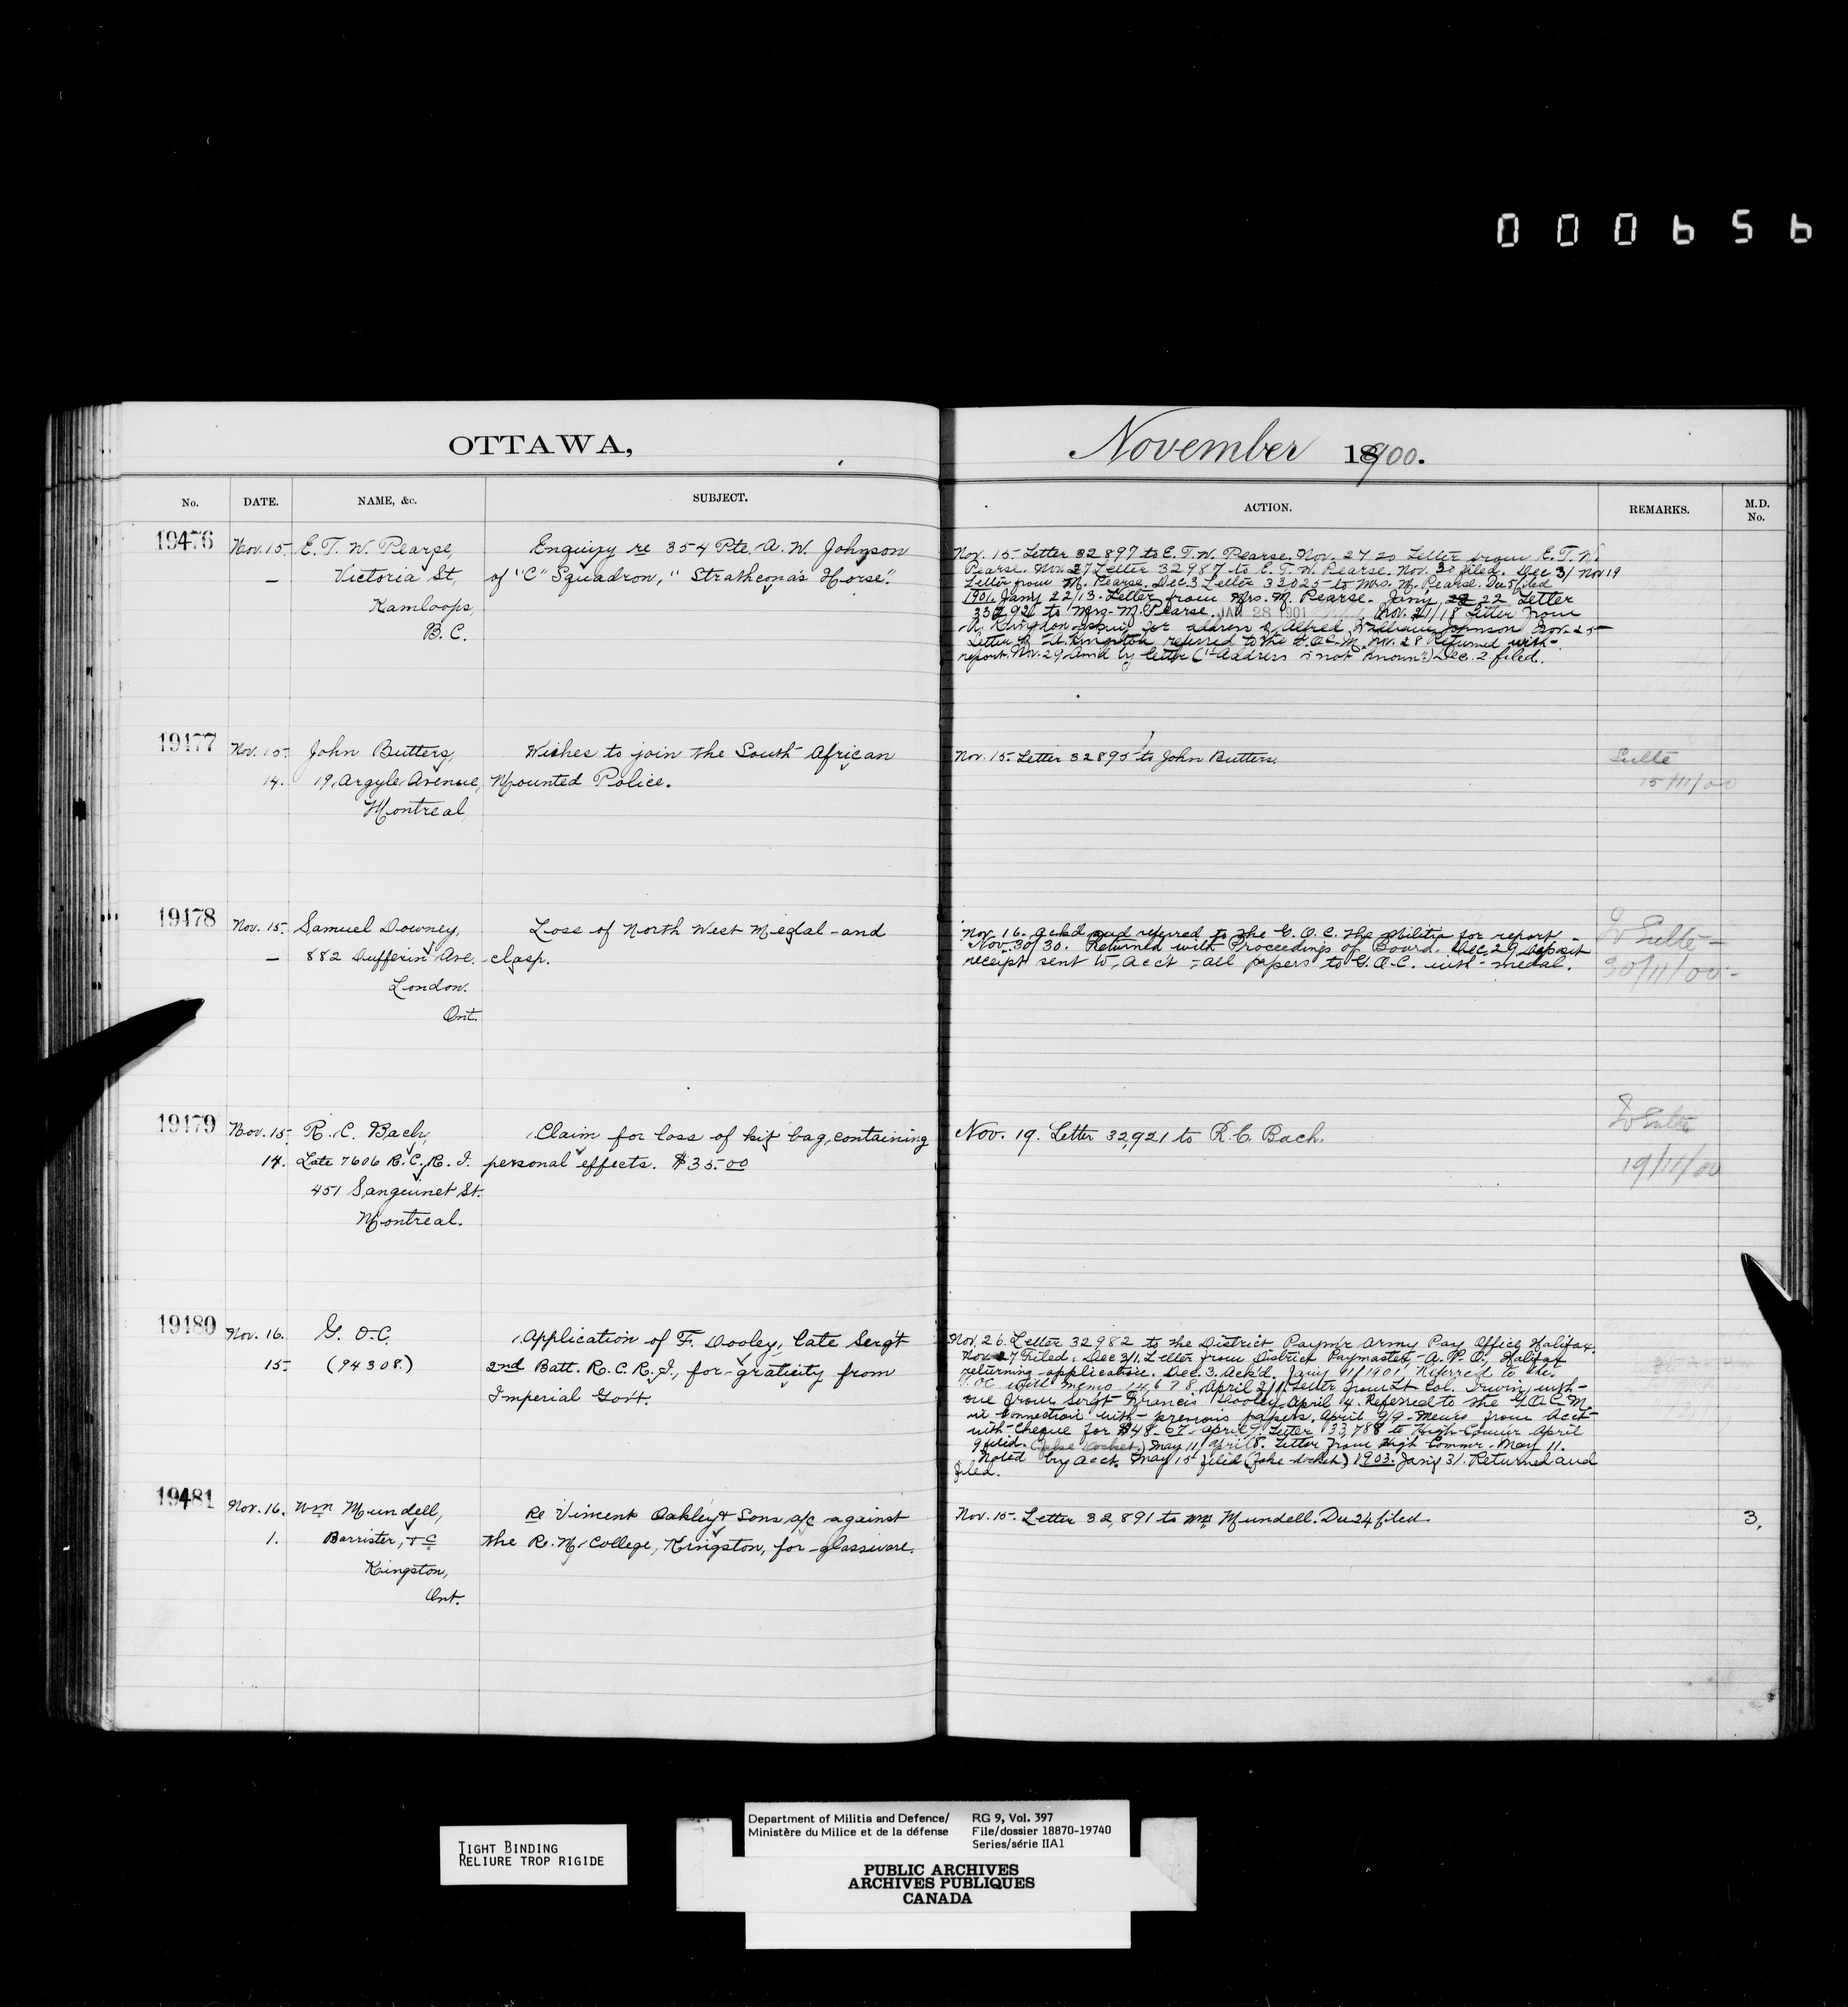 000656
OTTAWA,
November 1900.
No. DATE. NAME, &c. SUBJECT.
ACTION. REMARKS. M.D. No.
19476 Nov. 15. E. T. W. Pearse, Enquiry re 354 Pte. A. W. Johnson
— Victoria St, of "C" Squadron, "Strathcona's Horse".
Kamloops,
B.C.
Nov. 15 Letter 32897 to E. T. W. Pearse. Nov. 27 20 Letter from E. T. W.
Pearse. Nov. 27 Letter 32987 to E. T. W. Pearse. Nov. 30 filed. Dec 3/ Nov 19
Letter from M. Pearse. Dec. 3 Letter 33025 to Mrs. M. Pearse. Dec 5 filed
1901. Jany 22/13. Letter from Mrs. M. Pearse. Jany 22 Letter
to Mrs. M. Pearse. JAN 28 1901 Nov. 21/18 Letter from
A. Kingdon for address of Alfred William Johnson Nov. 25
Letter referred to the Nov. 28 Returned with
report. Nov. 29 Ansd by letter ("Address is not known") Dec. 2 filed.
19477 Nov. 15. John Butters, Wishes to join the South African
14. 19, Argyle Avenue, Mounted Police.
Montreal,
Nov. 15. Letter 32895 to John Butters.
Sulte
15/11/00
19478 Nov. 15. Samuel Downey, Loss of North West Medal and
— 882 Dufferin Ave. clasp.
London.
Ont.
Nov. 16. Ackd and referred to the G.O.C. the Militia for report
Nov. 30/30. Returned with Proceedings of Board. Dec. 29 Deposit
receipt sent to Acc't all papers to G.O.C. with medal.
Sulte
30/11/00
19479 Nov. 15. R. C. Bach, Claim for loss of kit bag, containing
14. Late 7606 R.C.R.I. personal effects. $35.00
451 Sanguinet St.
Montreal.
Nov. 19. Letter 32,921 to R. C. Bach.
Sulte
19/11/00
19480 Nov. 16. G.O.C. Application of F. Dooley, late Sergt
15 (94308.) 2nd Batt. R.C.R.I., for gratuity from
Imperial Govt.
Nov. 26. Letter 32982 to the District Paymr Army Pay Office Halifax.
Nov 27 Filed. Dec 3/1. Letter from District Paymaster, A.P.O., Halifax
returning application. Dec. 3. Ackd. Jany 9/1901 Referred to the
G.O.C. with memo 14678 April 2/1 Letter from Lt Col. Irwin with
one from Sergt Francis Dooley. April 4. Referred to the G.O.C.M.
in connection with previous papers. April 9/9 Memo from Acct
with cheque for $48.67 April 9. Letter 33,788 to High Commr April
9 filed. (false docket) May 11/April 8. Letter from High Commr. May 11.
Noted by Acct. May 15 filed (false docket) 1903. Jany 31. Returned and
filed.
19481 Nov. 16. Wm Mundell, Re Vincent Oakley & Sons a/c against
1. Barrister, &c the R. M. College, Kingston, for glassware.
Kingston,
Ont.
Nov. 15. Letter 32,891 to Wm Mundell. Dec 24 filed.
3.
TIGHT BINDING
RELIURE TROP RIGIDE
Department of Militia and Defence/
Ministère du Milice et de la défense
RG 9, Vol. 397
File/dossier 18870-19740
Series/série IIA1
PUBLIC ARCHIVES
ARCHIVES PUBLIQUES
CANADA